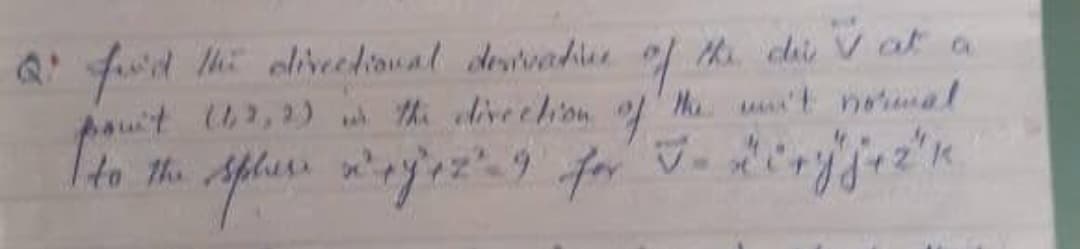 Q: find the directional derivative of the div V⃗ at a
point (1,2,2) in the direction of the unit normal
to the sphere x²+y²+z²=9 for V⃗ = x⁴i+y⁴j+z⁴k